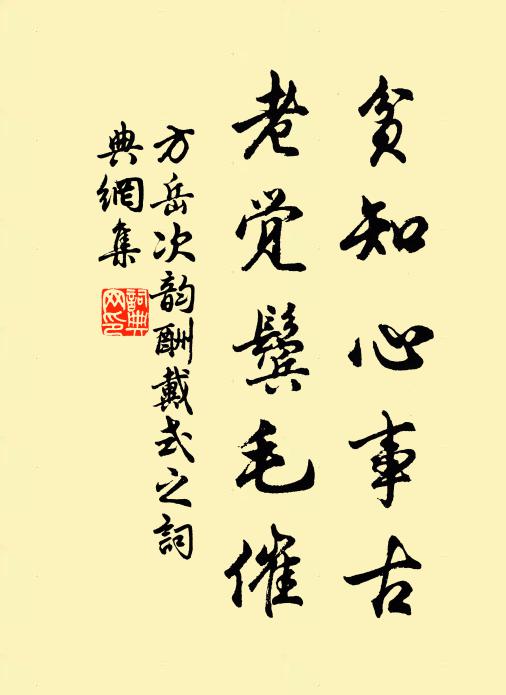 贫知心事古
老觉鬓毛催
方岳次韵酬戴式之词
典網集
詞典网印